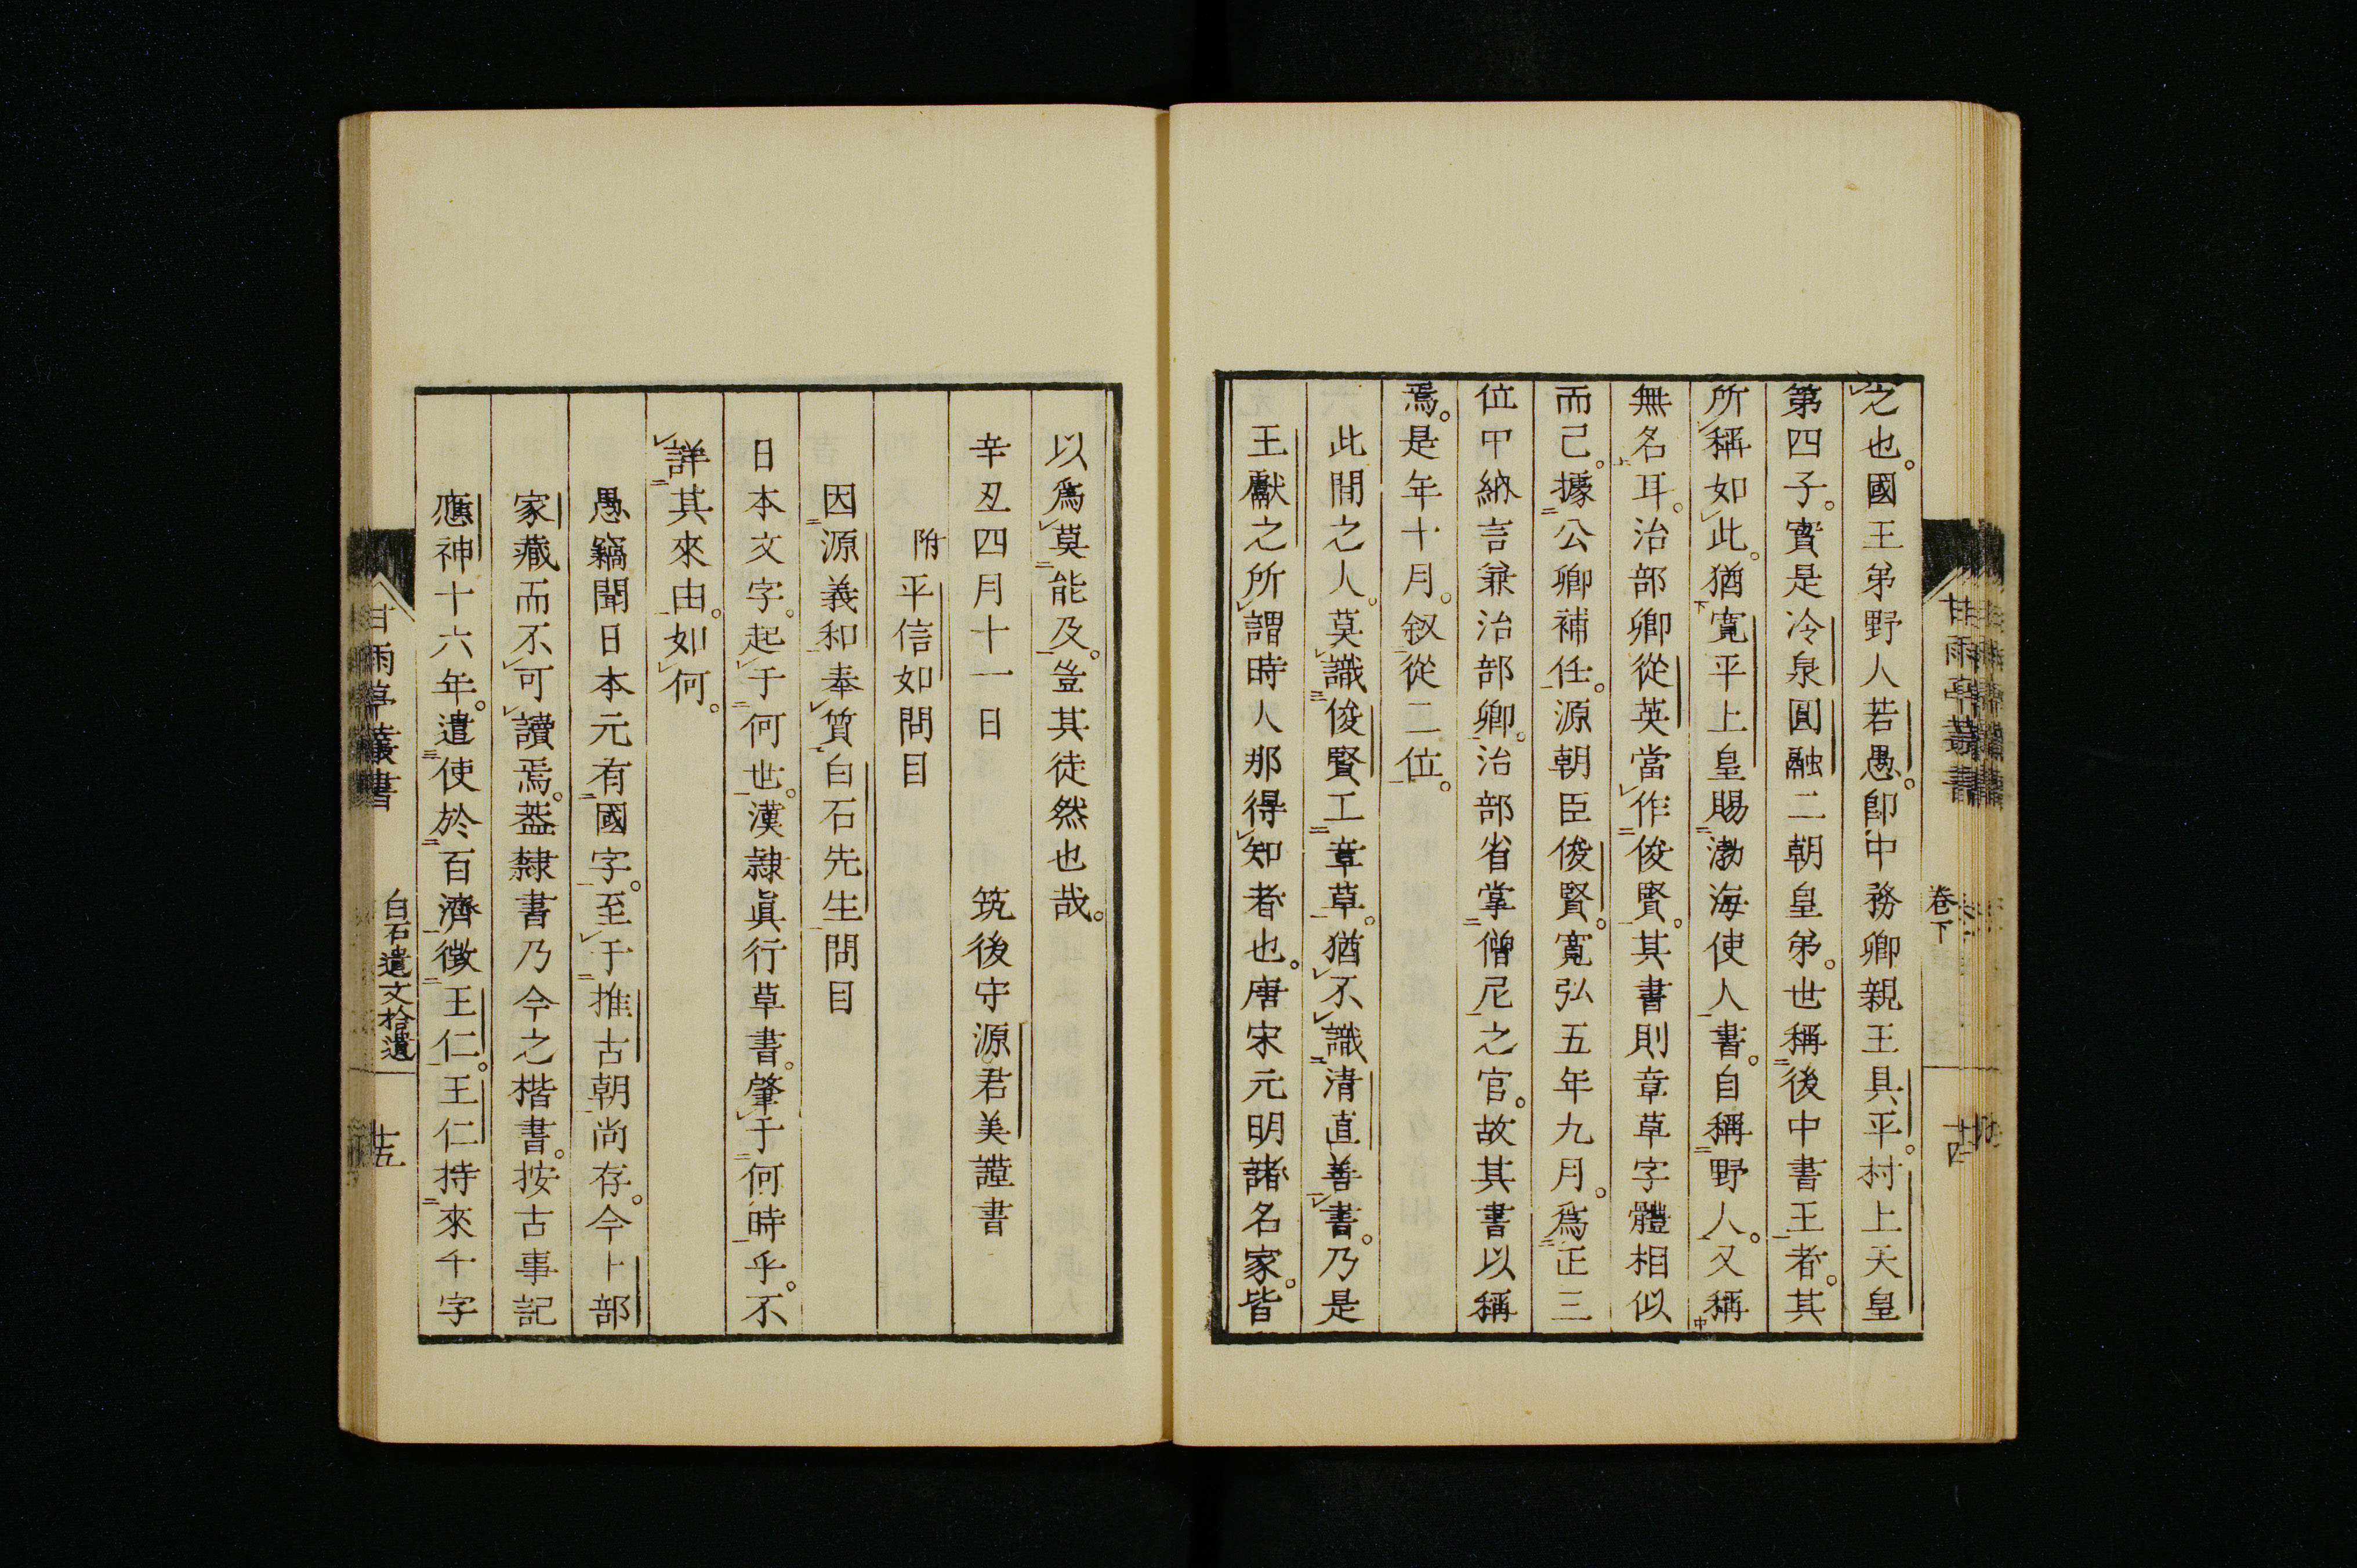 之也。國王弟野人若愚。卽中務卿親王具平。村上天皇
第四子。實是冷泉圓融二朝皇弟。世稱後中書王者。其
所稱如此。猶寬平上皇賜渤海使人書。自稱野人。又稱
無名耳。治部卿從英當作俊賢。其書則章草字體相似
而已。據公卿補任。源朝臣俊賢。寬弘五年九月。爲正三
位中納言兼治部卿。治部省掌僧尼之官。故其書以稱
焉。是年十月。叙從二位。
此間之人。莫識俊賢工章草。猶不識淸直善書。乃是
王獻之所謂時人那得知者也。唐宋元明諸名家。皆
甘雨亭叢書
卷下
十四
以爲莫能及。豈其徒然也哉。
辛丑四月十一日 筑後守源君美謹書
附平信如問目
因源義和奉質白石先生問目
日本文字。起于何世。漢隷眞行草書。肇于何時乎。不
詳其來由。如何。
愚竊聞日本元有國字。至于推古朝尚存。今卜部
家藏而不可讀焉。蓋隸書乃今之楷書。按古事記
應神十六年。遣使於百濟徵王仁。王仁持來千字
甘雨亭叢書
白石遺文拾遺
十五